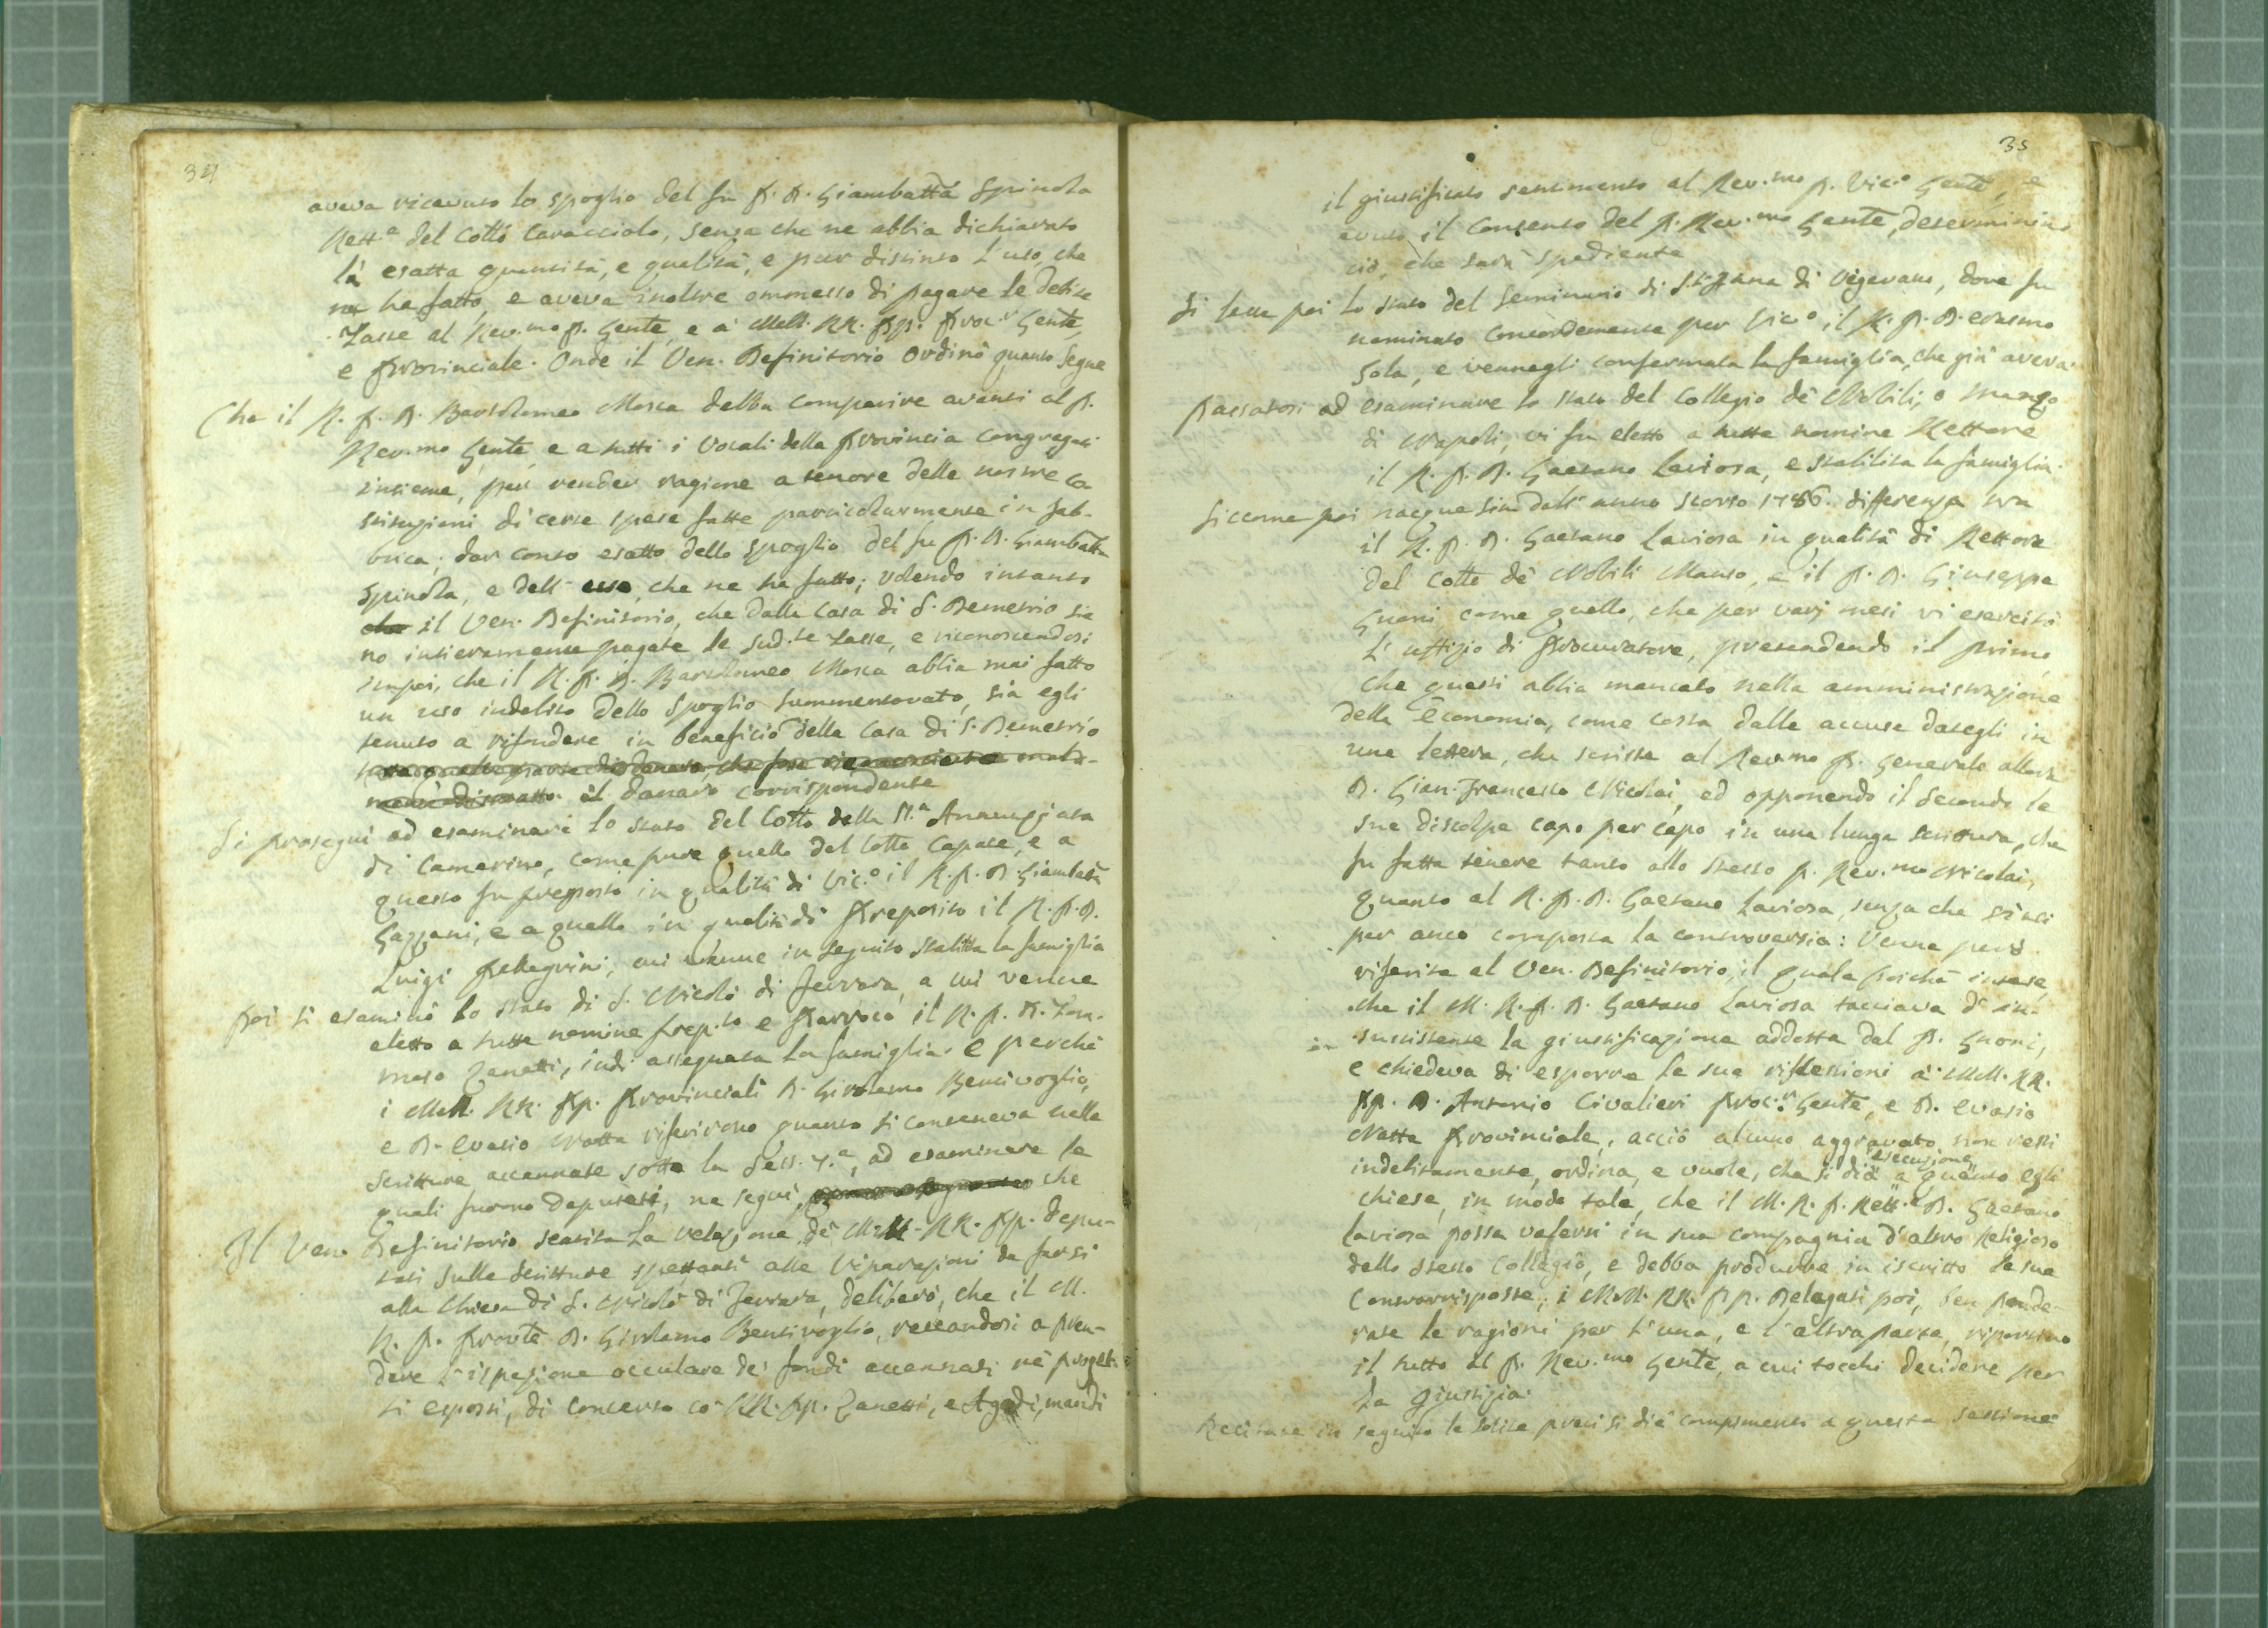 34
aveva ricevuto lo spoglio del fu P. D. Giambatta Spinola
Rett.e del Collo Caracciolo, senza che ne abbia dichiarato
la esatta quantità, e qualità, e pur distinto l'uso, che
ne ha fatto, e aveva inoltre ommesso di pagare le debite
Tasse al Rev.mo P. Gente, e a' MM. RR. PP. Proc.r Gente,
e Provinciale. Onde il Ven. Definitorio ordinò quanto segue
Che il R. P. D. Bartolomeo Mosca debba comparire avanti al P.
Rev.mo Gente, e a tutti i Vocali della Provincia congregati
insieme, per render ragione a tenore delle nostre Co
stituzioni di certe spese fatte particolarmente in fab-
brica; dar conto esatto dello spoglio del fu P. D. Giambatta
Spinola, e dell' uso, che ne ha fatto; volendo intanto
che il Ven. Definitorio, che dalla Casa di S. Demetrio sia
no intieramente pagate le sud.te Tasse, e riconoscendosi
in poi, che il R. P. D. Bartolomeo Mosca abbia mai fatto
un uso indebito dello spoglio summentovato, sia egli
tenuto a rifondere in beneficio della Casa di S. Demetrio
il danaro corrispondente
Si proseguì ad esaminare lo stato del Collo della SS.a Annunziata
di Camerino, come pure quello del Collo Capace, e a
questo fu preposto in qualità di Vic.o il R. P. D. Giambatta
Gazzani, e a quello in qualità di Preposito il R. P. D.
Luigi Pellegrini, cui venne in seguito stabilita la famiglia
Poi si esaminò lo stato di S. Nicolò di Ferrara, a cui venne
eletto a tutte nomine Prep.to e Parroco il R. P. D. Tom-
maso Zanetti, indi assegnata la famiglia. E perchè
i MM. RR. PP. Provinciali D. Girolamo Bentivoglio,
e D. Evasio Natta riferirono quanto si conteneva nelle
scritture accennate sotto la Sess. 7.a, ad esaminare le
quali furono deputati, ne seguì, che
Il Ven. Definitorio sentita la relazione de' MM. RR. PP. depu-
tati sulle scritture spettanti alle riparazioni da farsi
alla Chiesa di S. Nicolò di Ferrara, deliberò, che il M.
R. P. Provle D. Girolamo Bentivoglio, recandosi a pren-
dere l'ispezione occulare de' fondi accennati nè proget-
ti esposti, di concerto co' RR. PP. Zanetti, e Agodi, mandi
35
il giustificato sentimento al Rev.mo P. Vic.o Gente, e
avuto il consenso del P. Rev.mo Gente, determinino
ciò, che sarà spediente
Si lesse poi lo stato del Seminario di S. Anna di Vigevano, dove fu
nominato concordemente per Vic.o il R. P. D. Erasmo
Sola, e vennegli confermata la famiglia, che già aveva.
Passatosi ad esaminare lo stato del Collegio de' Nobili, o Manzo
di Napoli, vi fu eletto a tutte nomine Rettore
il R. P. D. Gaetano Laviosa, e stabilita la famiglia.
Siccome poi nacque sin dall' anno scorso 1786. differenza tra
il R. P. D. Gaetano Laviosa in qualità di Rettore
del Collo de' Nobili Manso, e il P. D. Giuseppe
Guoni come quello, che per varj mesi vi esercitò
l' uffizio di Procuratore, pretendendo il primo,
che questi abbia mancato nella amministrazione
della Economia, come costa dalle accuse dategli in
una lettera, che scrisse al Rev.mo P. Generale allora
D. Gian-Francesco Nicolai, ed opponendo il secondo le
sue discolpe capo per capo in una lunga scrittura, che
fu fatta tenere tanto allo stesso P. Rev.mo Nicolai,
quanto al R. P. D. Gaetano Laviosa, senza che siasi
per anco composta la controversia: Venne però
riferita al Ven. Definitorio, il quale poichè intese,
che il M. R. P. D. Gaetano Laviosa tacciava d' in-
sussistente la giustificazione addotta dal P. Guoni,
e chiedeva di esporre le sue riflessioni a' MM. RR.
PP. D. Antonio Civalieri Proc.r Gente, e D. Evasio
Natta Provinciale, acciò alcuno aggravato non resti
indebitamente, ordina, e vuole, che si dia esecuzione a quanto egli
chiese, in modo tale, che il M. R. P. Rett.e D. Gaetano
Laviosa possa valersi in sua compagnia d' altro Religioso
dello stesso Collegio, e debba produrre in iscritto le sue
Controrrisposte; i MM. RR. PP. Delegati poi, ben ponde-
rate le ragioni per l' una, e l' altra parte, riportino
il tutto al P. Rev.mo Gente, a cui tocchi decidere per
la Giustizia.
Recitate in seguito le solite preci si diè compimento a questa sessione